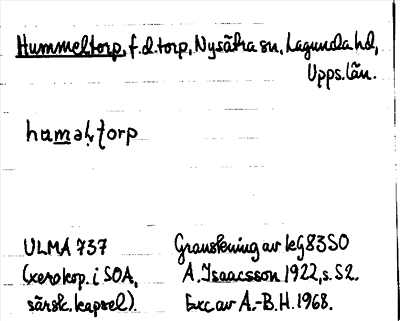 Hummeltorp, f.d. torp, Nysätra sn, Lagunda hd,
Upps. län.
humǝḷṭorp
ULMA 737 Granskning av leg 83 SO
(xerokop. i SOA, A. Isaacsson 1922, s. 52.
särsk. kapsel). Exc av A.-B. H. 1968.